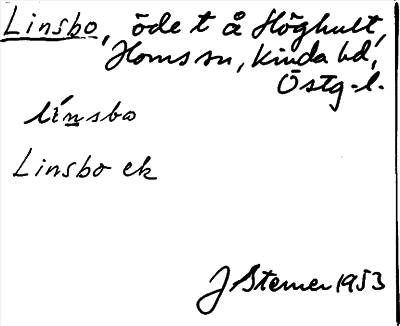 Linsbo, öde t å Höghult,
Horns sn, Kinda hd,
Östg.l.
línsbo
Linsbo ek
J Stemer 1953